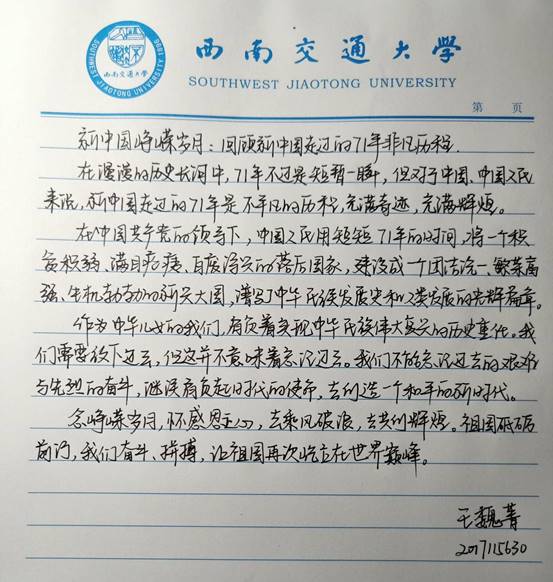 SOUTHWEST JIAOTONG UNIVERSITY 1896
西南交通大学
西南交通大学
SOUTHWEST JIAOTONG UNIVERSITY
第 页
新中国峥嵘岁月：回顾新中国走过的71年非凡历程.
在漫漫的历史长河中，71年不过是短暂一瞬，但对于中国、中国人民
来说，新中国走过的71年是不平凡的历程，充满奇迹，充满辉煌。
在中国共产党的领导下，中国人民用短短71年的时间，将一个积
贫积弱、满目疮痍、百废待兴的落后国家，建设成一个团结统一、繁荣富
强、生机勃勃的新兴大国，谱写了中华民族发展史和人类发展的光辉篇章。
作为中华儿女的我们，肩负着实现中华民族伟大复兴的历史重任。我
们需要放下过去，但这并不意味着忘记过去。我们不能忘记过去的艰难
与先烈的奋斗，继续肩负起时代的使命，去创造一个和平的新时代。
念峥嵘岁月，怀感恩之心，去乘风破浪，去共创辉煌。祖国砥砺
前行，我们奋斗、拼搏，让祖国再次屹立在世界巅峰。
王魏菁
2017115630